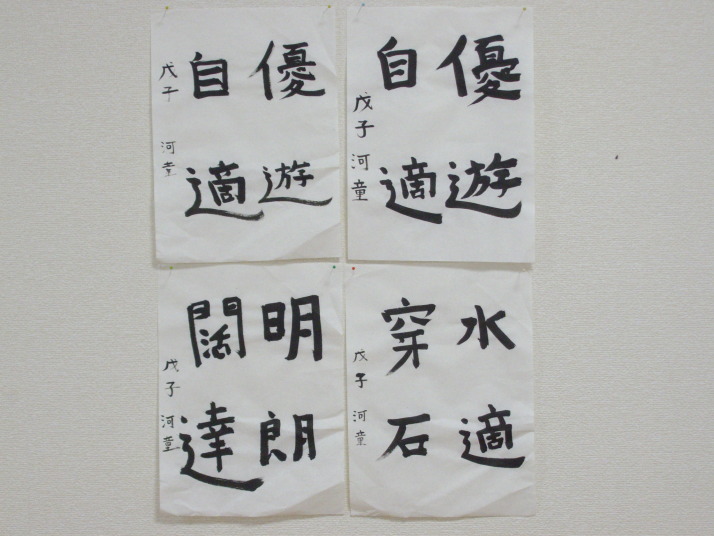 優遊
自適
戊子河童
優遊
自適
戊子 河童
水適
穿石
戊子 河童
明朗
闊達
戊子 河童